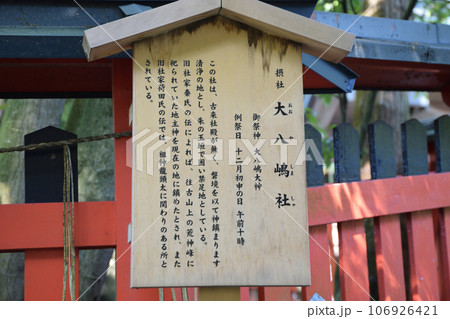 摂社 大八嶋社
おおやしましゃ
御祭神 大八嶋大神
例祭日 十二月初申の日 午前十時
この社は、古来社殿が無く、磐境を以て神鎮まります
清浄の地とし、朱の玉垣で囲い禁足地としている。
旧社家秦氏の伝によれば、往古山上の荒神峰に
祀られていた地主神を現在の地に鎮めたとされ、また
旧社家荷田氏の伝では、祖神龍頭太に関わりのある所と
されている。
pixta.jp - 106926421